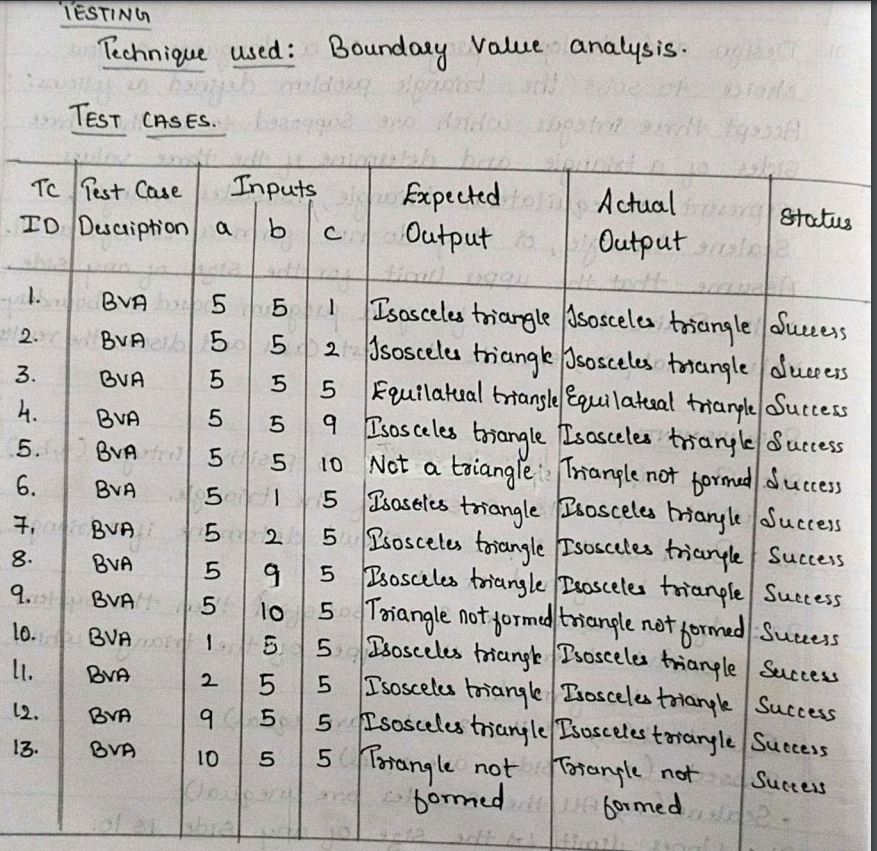 TESTING
Technique used: Boundary Value analysis.
TEST CASES.
TC Test Case Inputs Expected Actual Status
ID Description a b c Output Output
1. BVA 5 5 1 Isosceles triangle Isosceles triangle Success
2. BVA 5 5 2 Isosceles triangle Isosceles triangle Success
3. BVA 5 5 5 Equilateral triangle Equilateral triangle Success
4. BVA 5 5 9 Isosceles triangle Isosceles triangle Success
5. BVA 5 5 10 Not a triangle Triangle not formed Success
6. BVA 5 1 5 Isosceles triangle Isosceles triangle Success
7. BVA 5 2 5 Isosceles triangle Isosceles triangle Success
8. BVA 5 9 5 Isosceles triangle Isosceles triangle Success
9. BVA 5 10 5 Triangle not formed triangle not formed Success
10. BVA 1 5 5 Isosceles triangle Isosceles triangle Success
11. BVA 2 5 5 Isosceles triangle Isosceles triangle Success
12. BVA 9 5 5 Isosceles triangle Isosceles triangle Success
13. BVA 10 5 5 Triangle not Triangle not Success
formed formed